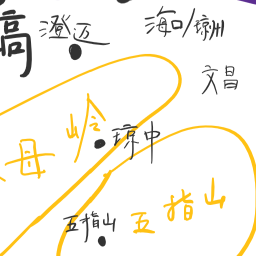 澄迈
海口/琼州
文昌
母岭
琼中
五指山
五指山